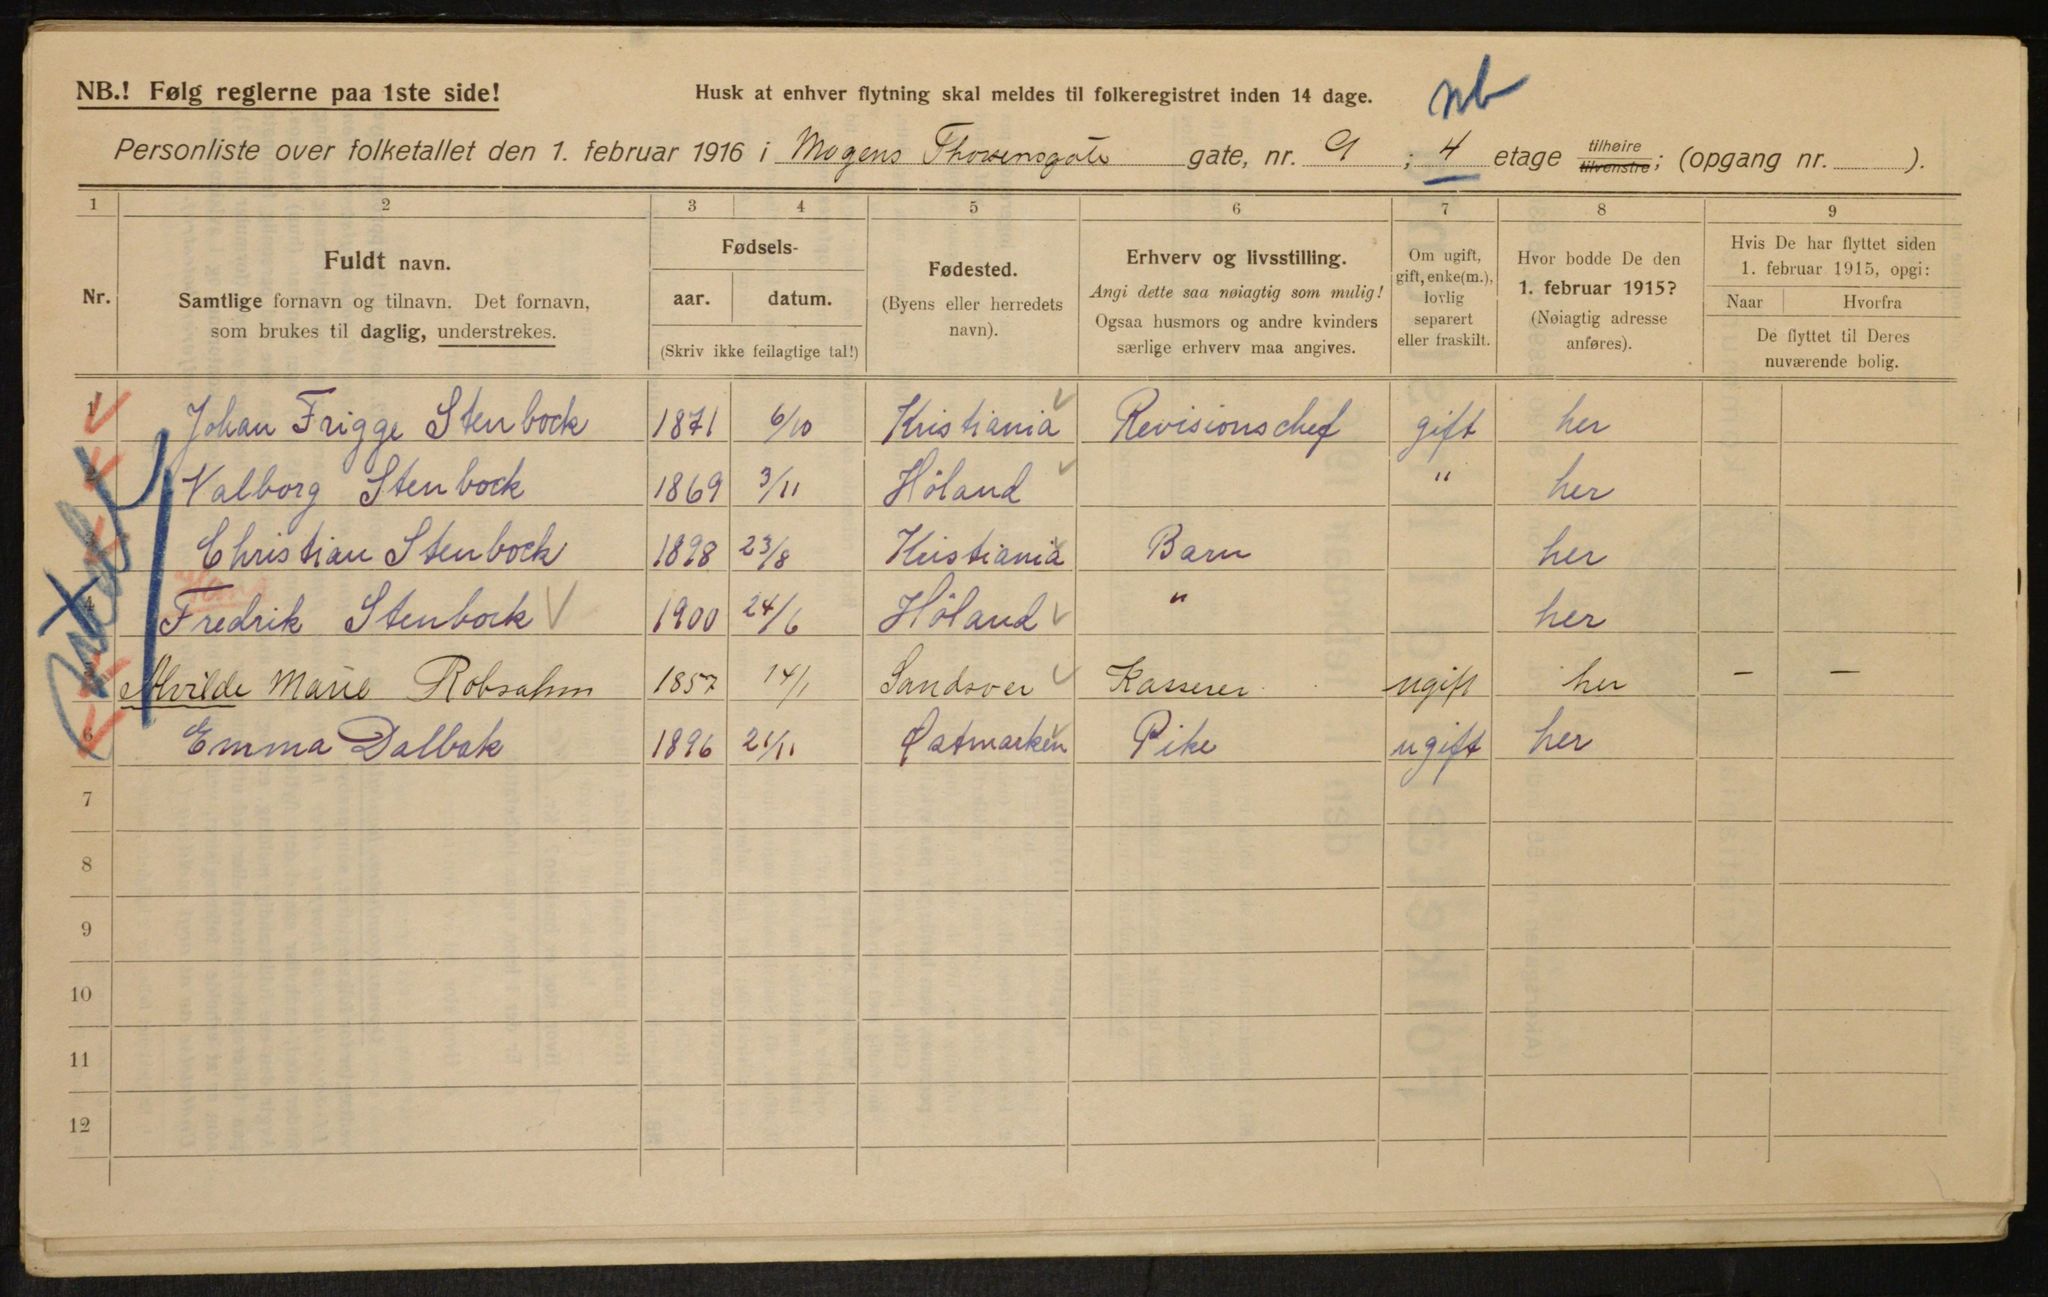 nb
NB.! Følg reglerne paa 1ste side!
Husk at enhver flytning skal meldes til folkeregistret inden 14 dage.
Personliste over folketallet den 1. februar 1916 i Mogens Thorsensgate gate, nr. 9 ; 4 etage tilhøire tilvenstre; (opgang nr. ).
1 2 3 4 5 6 7 8 9
Nr.
Fuldt navn.
Samtlige fornavn og tilnavn. Det fornavn,
som brukes til daglig, understrekes.
Fødsels-
aar. datum.
(Skriv ikke feilagtige tal!)
Fødested.
(Byens eller herredets
navn).
Erhverv og livsstilling.
Angi dette saa nøiagtig som mulig!
Ogsaa husmors og andre kvinders
særlige erhverv maa angives.
Om ugift,
gift, enke(m.),
lovlig
separert
eller fraskilt.
Hvor bodde De den
1. februar 1915?
(Nøiagtig adresse
anføres).
Hvis De har flyttet siden
1. februar 1915, opgi:
Naar Hvorfra
De flyttet til Deres
nuværende bolig.
1 Johan Frigge Stenbock 1871 6/10 Kristiania Revisionschef gift her
2 Valborg Stenbock 1869 3/11 Höland " her
3 Christian Stenbock 1898 23/8 Kristiania Barn her
4 Fredrik Stenbock 1900 24/6 Höland " her
5 Alvilde Marie Robsahm 1857 14/1 Sandsvær Kasserer ugift her - -
6 Emma Dalbak 1896 21/11 Østmarken Pike ugift her
7
8
9
10
11
12